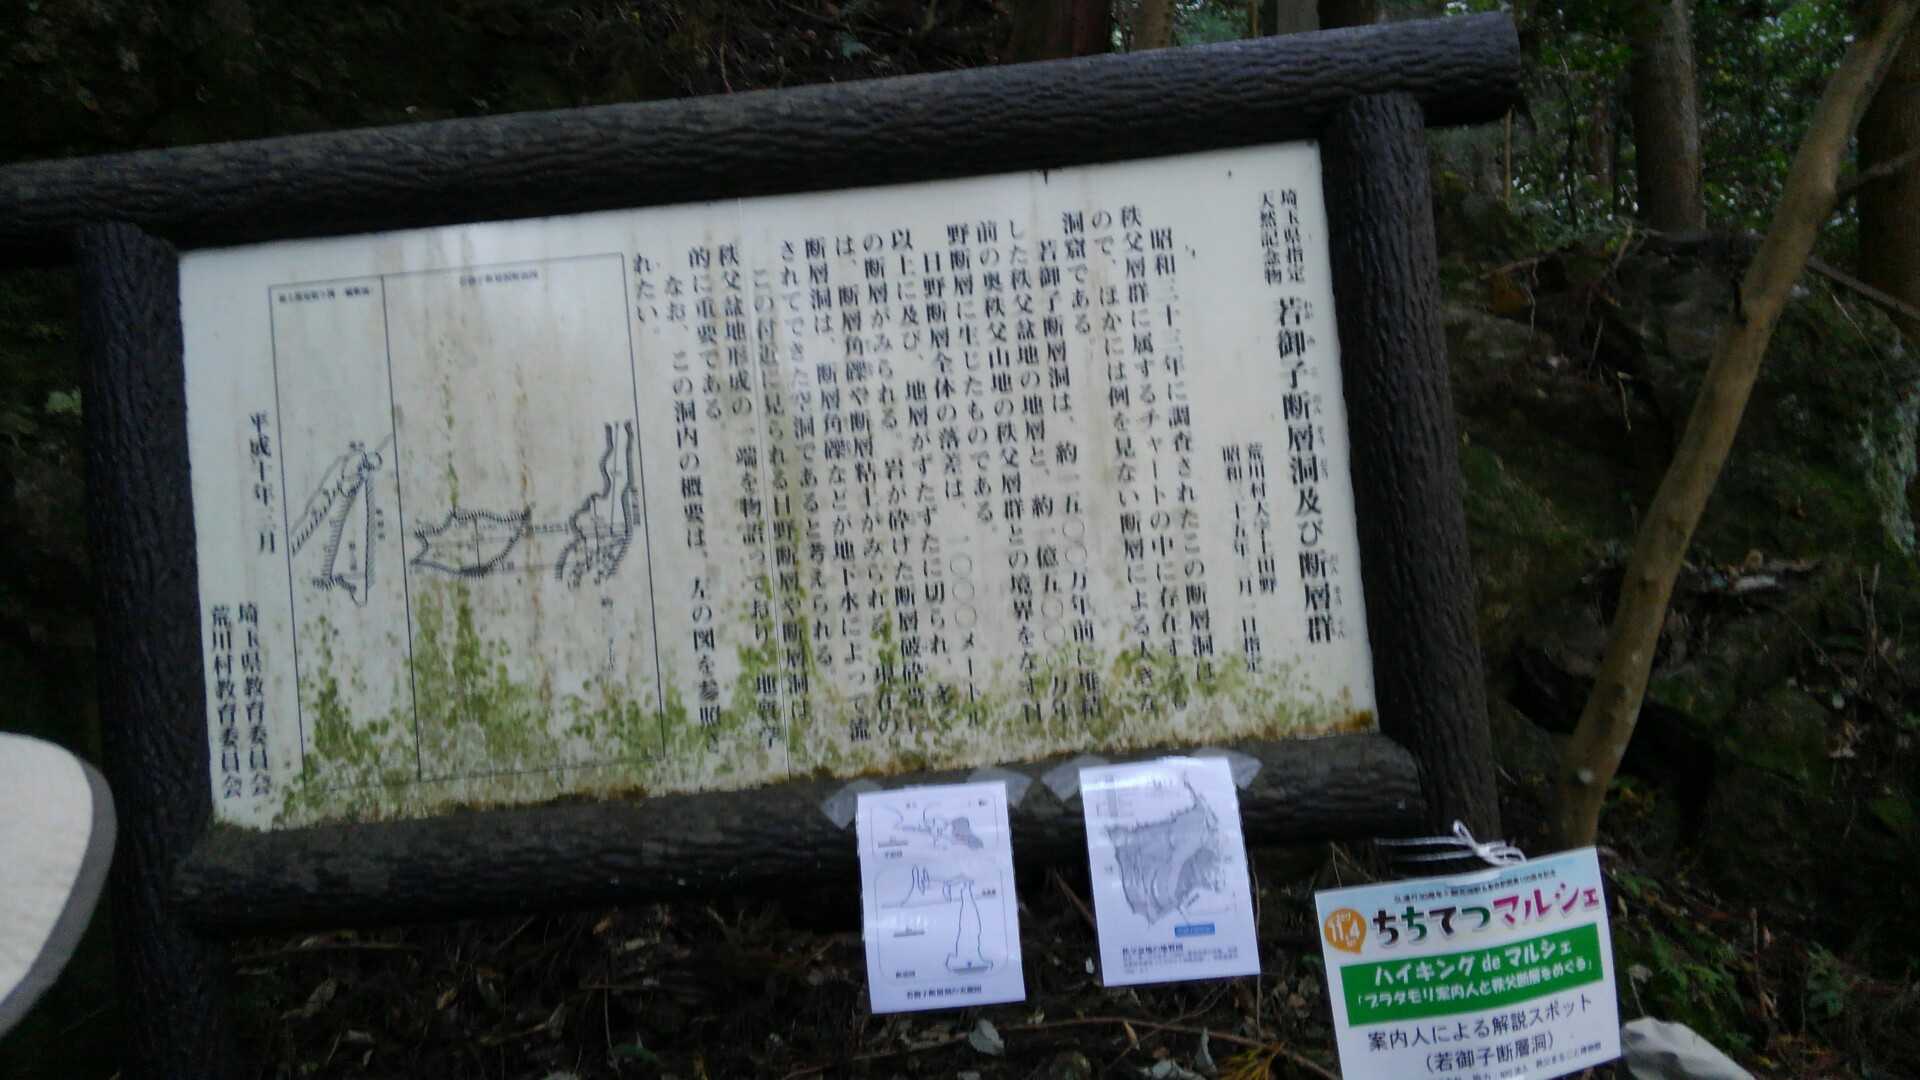 埼玉県指定
天然記念物
若御子断層洞及び断層群
荒川村大字上田野
昭和三十五年三月一日指定
昭和三十三年に調査されたこの断層洞は
秩父層群に属するチャートの中に存在する
ので、ほかには例を見ない断層による大きな
洞窟である。
若御子断層洞は、約一五〇〇万年前に堆積
した秩父盆地の地層と、約一億五〇〇〇万年
前の奥秩父山地の秩父層群との境界をなす日
野断層に生じたものである。
日野断層全体の落差は、一〇〇〇メートル
以上に及び、地層がずたずたに切られ、多く
の断層がみられる。岩が砕けた断層破砕帯に
は、断層角礫や断層粘土がみられる。現在の
断層洞は、断層角礫などが地下水によって流
されてできた空洞であると考えられる。
この付近に見られる日野断層や断層洞は
秩父盆地形成の一端を物語っており、地質学
的に重要である。
なお、この洞内の概要は、左の図を参照さ
れたい。
平成十年三月
埼玉県教育委員会
荒川村教育委員会
11.4
ちちてつマルシェ
ハイキング de マルシェ
「ブラタモリ案内人と秩父断層をめぐる」
案内人による解説スポット
(若御子断層洞)